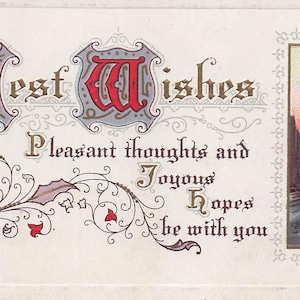 Best Wishes
Pleasant thoughts and
Joyous
Hopes
be with you